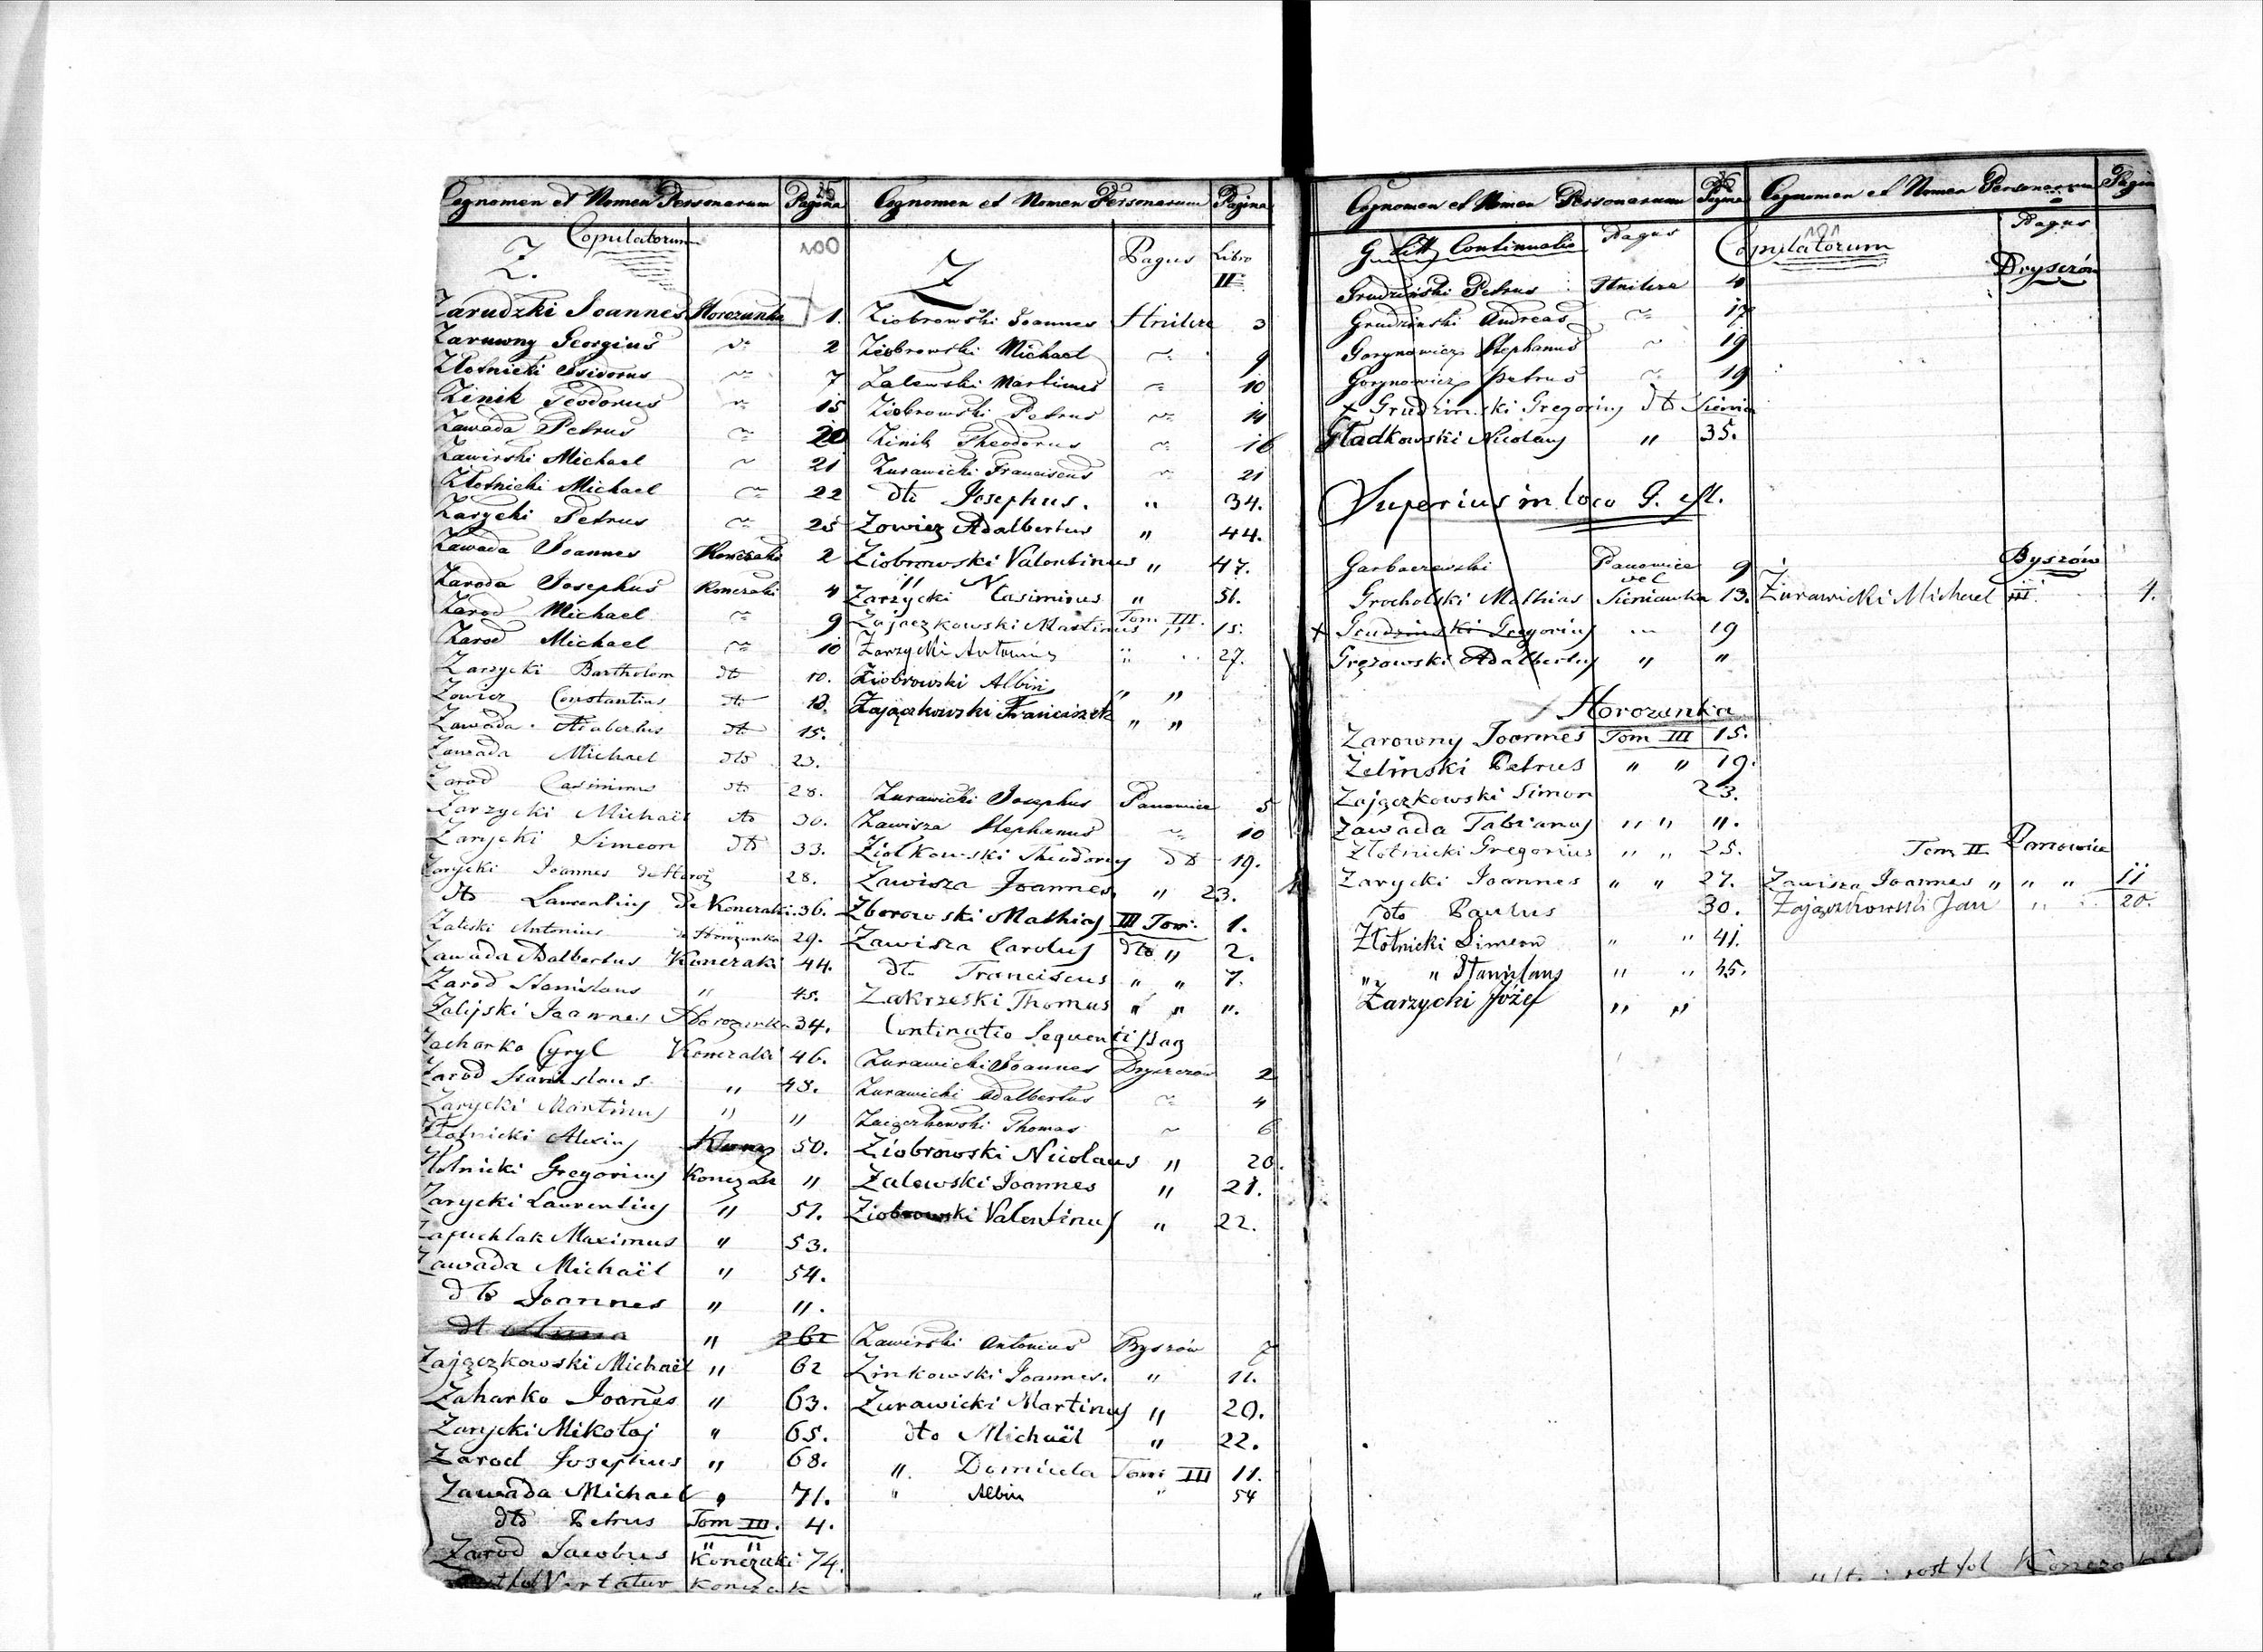 Cognomen et Nomen Personarum Pagina
Copulatorum 100
Z.
Zarudzki Joannes Horozanka 1.
Zaruwny Georgius 2
Złotnicki Isidorus 7
Zinik Teodorus 15
Zawada Petrus 20
Zawirski Michael 21
Złotnicki Michael 22
Zarycki Petrus 25
Zawada Joannes Konczaki 2
Zaroda Josephus Konczaki 4
Zarod Michael 9
Zarod Michael 10
Zarzycki Bartholom dto 10.
Zowicz Constantius dto 13.
Zawada Adalbertus dto 15.
Zawada Michael dto 23.
Zarod Casimirus dto 28.
Zarzycki Michaël dto 30.
Zarycki Simeon dto 33.
Zarycki Joannes de Horoz 28.
dto Laurentius de Konczaki 36.
Zaleski Antonius de Horożanka 29.
Zawada Adalbertus Konczaki 44.
Zarod Stanislaus " 45.
Zalijski Joannes Horozanka 34.
Zacharko Cyryl Konczaki 46.
Zarod Stanislaus " 48.
Zarycki Martinus " "
Złotnicki Alexius 50.
Złotnicki Gregorius Konczaki "
Zarycki Laurentius " 51.
Zapuchlak Maximus " 53.
Zawada Michaël " 54.
dto Joannes " ".
dt Anna " 262
Zajączkowski Michaël " 62
Zaharko Joanes " 63.
Zarycki Mikołaj " 65.
Zarod Josephus " 68.
Zawada Michael " 71.
dto Petrus Tom III. 4.
Zarod Jacobus Konczaki 74.
Vertatur Konczak
Cognomen et Nomen Personarum Pagina
Z Pagus Libro II
Ziobrowski Joannes Hnilcze 3
Ziobrowski Michael 9
Zalewski Martinus 10
Ziobrowski Petrus 14
Zinik Theodorus 16
Zurawicki Franciscus 21
dto Josephus. " 34.
Zowicz Adalbertus " 44.
Ziobrowski Valentinus " 47.
Zarzycki Casimirus " 51.
Zajaczkowski Martinus Tom III. " 15.
Zarzycki Antonius " 27.
Ziobrowski Albin " "
Zajączkowski Franciszek " "
Zurawicki Josephus Panowice 5
Zawisza Stephanus 10
Ziolkowski Theodorus dto 19.
Zawisza Joannes " 23.
Zborowski Mathias III Tom. 1.
Zawisza Carolus dto " 2.
dto Franciscus " " 7.
Zakrzeski Thomas " " ".
Continuatio Sequenti pag
Zurawicki Joannes Dryszczow 2
Zurawicki Adalbertus 4
Zajączkowski Thomas 6
Ziobrowski Nicolaus " 20.
Zalewski Joannes " 21.
Ziobrowski Valentinus " 22.
Zawirski Antonius Byszów 7
Zinkowski Joannes. " 11.
Zurawicki Martinus " 20.
dto Michaël " 22.
" Domicela Tom III 11.
" Albin " 54
Cognomen et Nomen Personarum 36 Pagina
G Litt Continuatio Pagus
Grudzinski Petrus Hnilcze 4
Grudzinski Andreas 17
Gorynowicz Stephanus 19
Gorynowicz Petrus 19
+ Grudzinski Gregorius dto
Gładkowski Nicolaus " 35.
Superius in loco G. est.
Garbaczewski Panowice 9
vel
Grocholski Mathias Sieniawka 13.
+ Grudzinski Gregorius 19
Gręzowski Adalbertus " "
Horozanka
Zarowny Joannes Tom III 15.
Zelinski Petrus " " 19.
Zajączkowski Simon 23.
Zawada Fabianus " " ".
Złotnicki Gregorius " " 25.
Zarycki Joannes " " 27.
dto Paulus 30.
Złotnicki Simeon " " 41.
" " Stanislaus " " 45.
Zarzycki Józef " "
Cognomen et Nomen Personarum Pagin
Copulatorum 101 Pagus
Dryszczów
Byszów
Żurawicki Michael III. 4.
Tom II Panowice
Zawisza Joannes " " " 11
Zajączkowski Jan " " 20.
post fol Konczaki